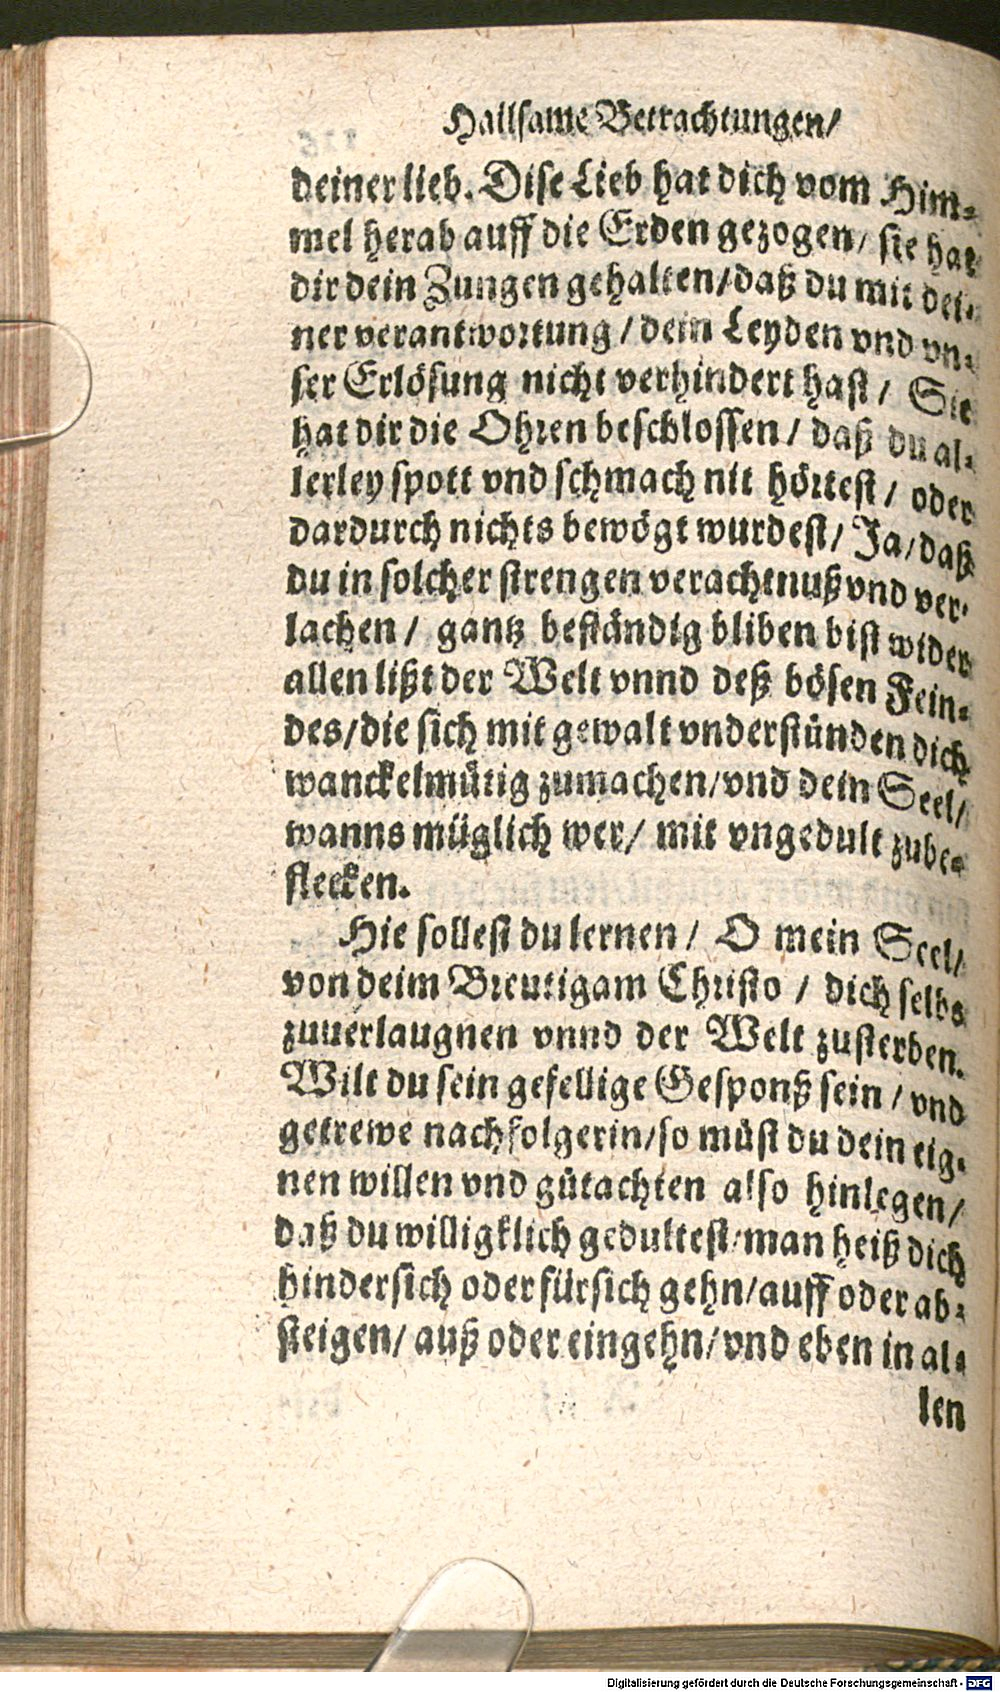 Hailsame Betrachtungen/
deiner lieb. Dise Lieb hat dich vom Him-
mel herab auff die Erden gezogen/ sie hat
dir dein Zungen gehalten/ daß du mit dei-
ner verantwortung/ dein Leyden vnd vn-
ser Erlösung nicht verhindert hast/ Sie
hat dir die Ohren beschlossen/ daß du al-
lerley spott vnd schmach nit hörtest/ oder
dardurch nichts bewögt wurdest/ Ja/ daß
du in solcher strengen verachtnuß vnd ver-
lachen/ gantz beständig bliben bist wider
allen lißt der Welt vnnd deß bösen Fein-
des/ die sich mit gewalt vnderstünden dich
wanckelmütig zumachen/ vnd dein Seel/
wanns müglich wer/ mit vngedult zube-
flecken.
Hie sollest du lernen/ O mein Seel/
von deim Breutigam Christo/ dich selbs
zuuerlaugnen vnnd der Welt zusterben.
Wilt du sein gefellige Gesponß sein/ vnd
getrewe nachfolgerin/ so müst du dein eig-
nen willen vnd gütachten also hinlegen/
daß du willigklich gedultest/ man heiß dich
hindersich oder fürsich gehn/ auff oder ab-
steigen/ auß oder eingehn/ vnd eben in al-
len
Digitalisierung gefördert durch die Deutsche Forschungsgemeinschaft - DFG